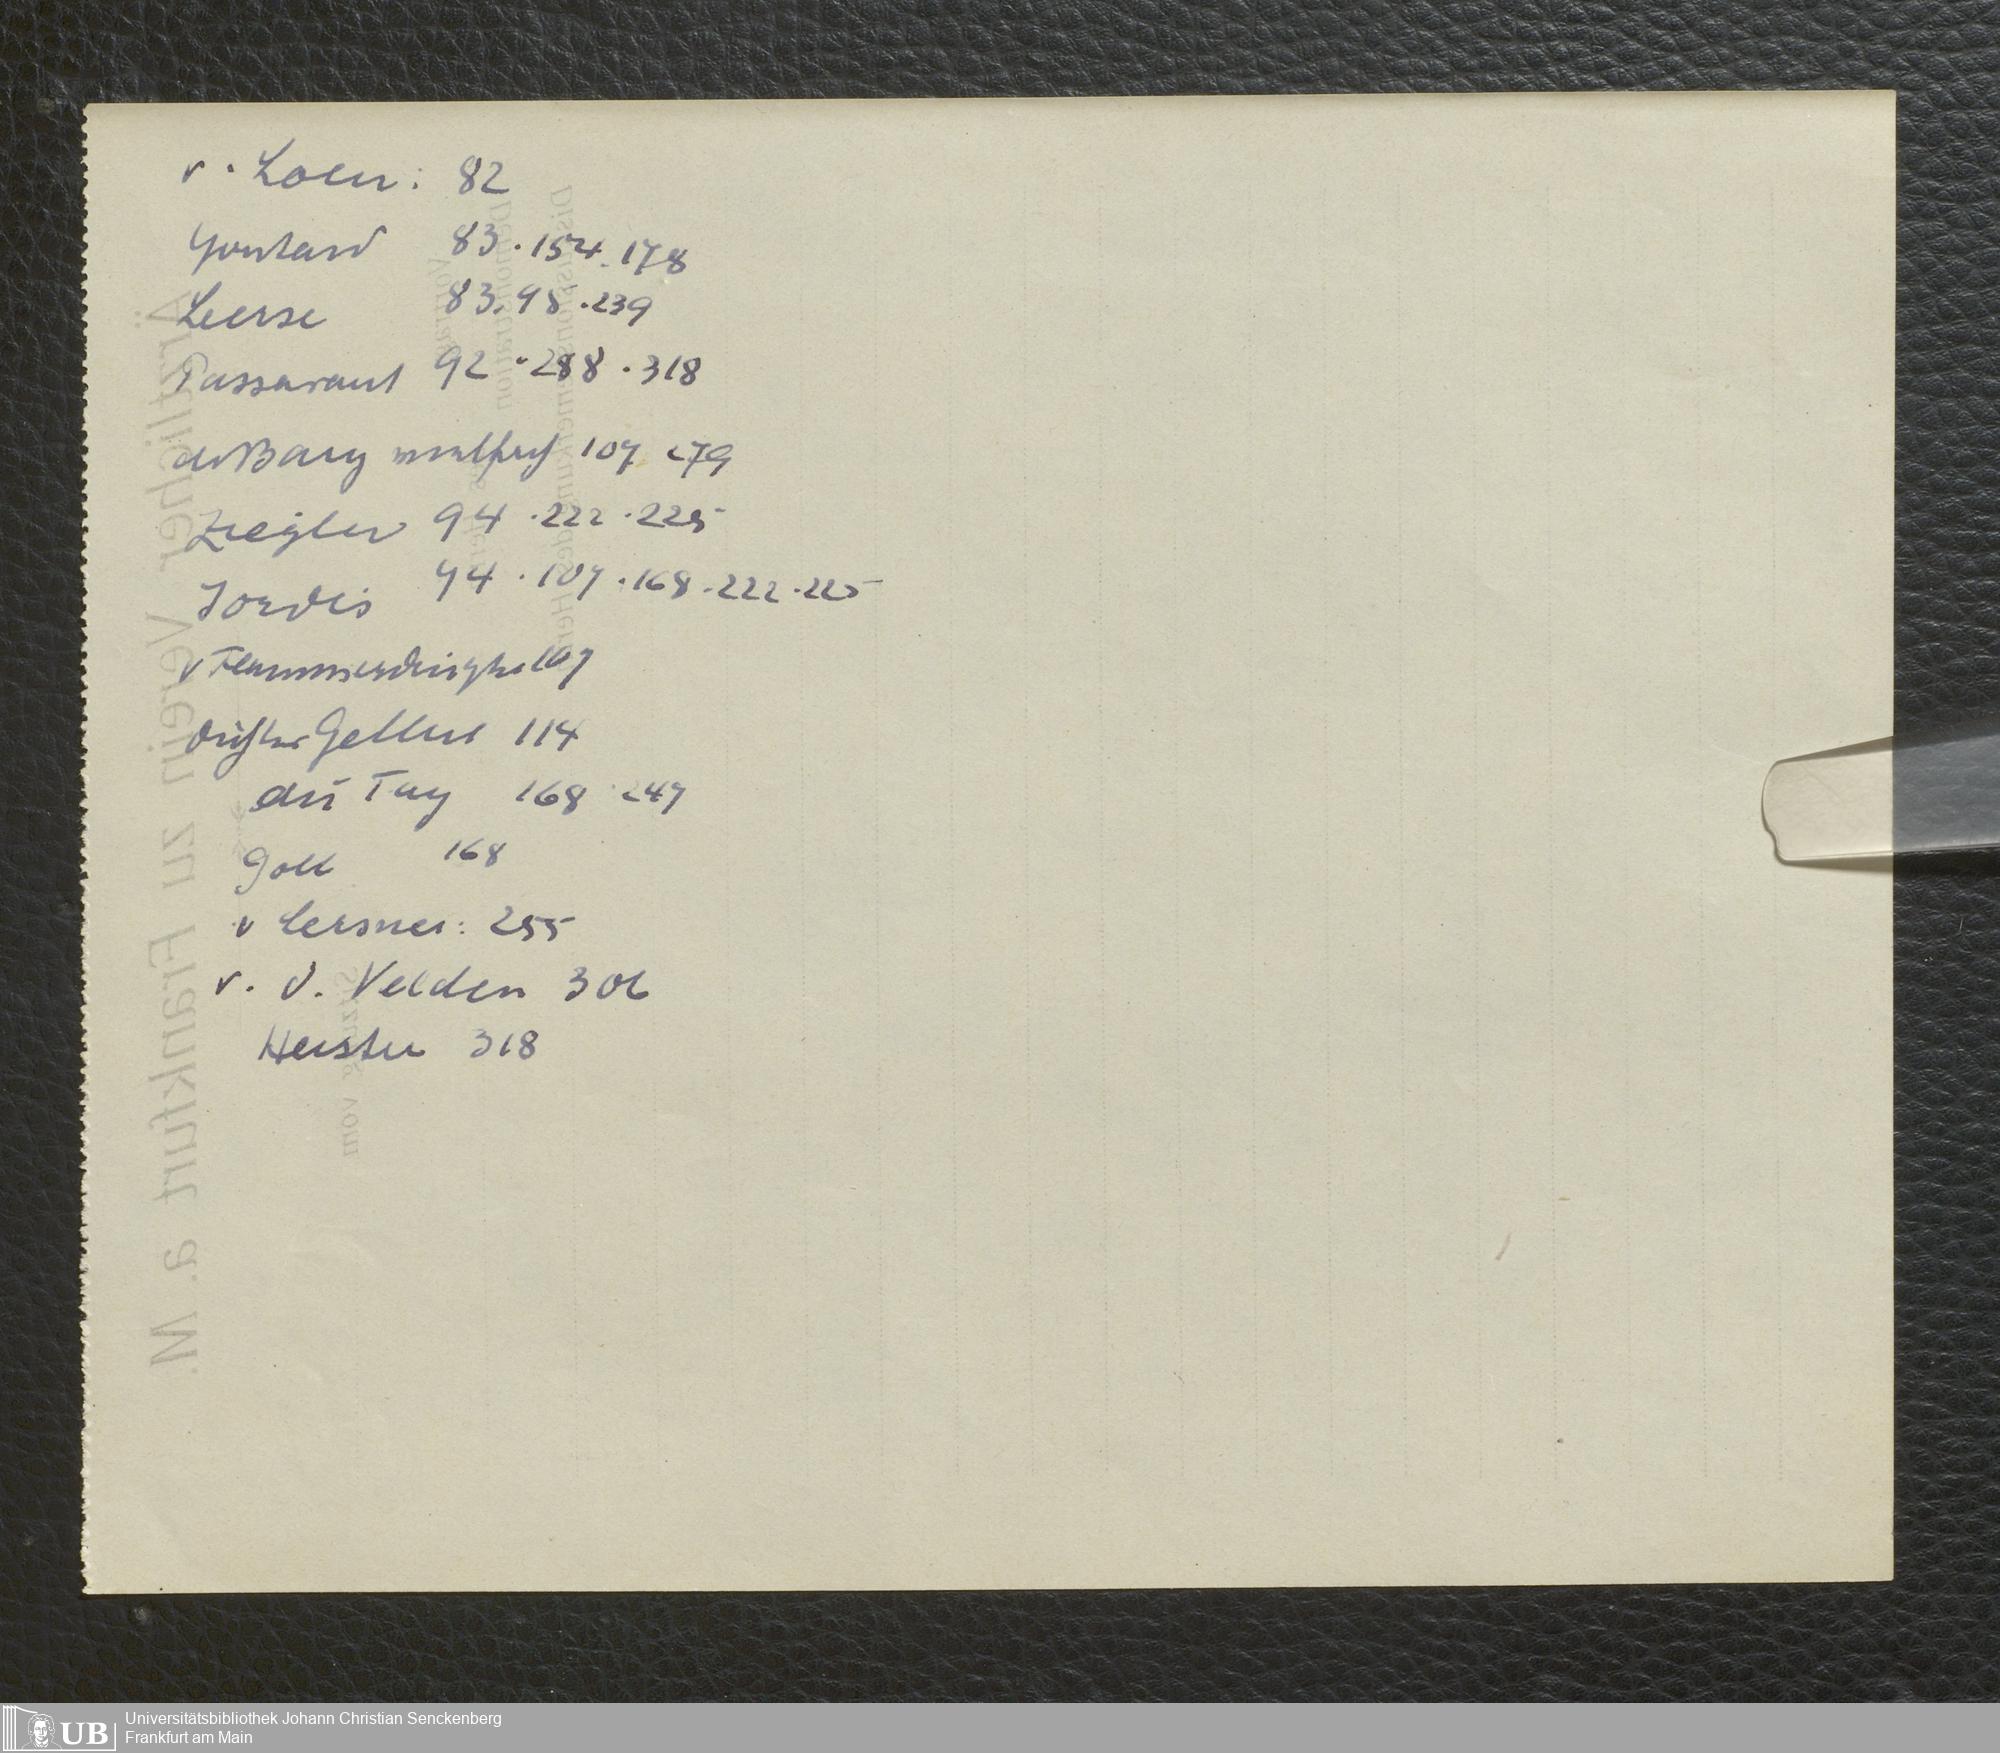 v. Loen: 82
Gontard 83.154.178
Leerse 83.98.239
Passavant 92.288.318
du Bary 107 279
Ziegler 94.222.225
Jordis 94.107.168.222.225
v 107
Dichter Gellert 114
du Fay 168 247
Goll 168
v Lersner: 255
v. d. Velden 306
Heister 318
Ärztlicher Verein zu Frankfurt a. M.
Sitzung vom
UB
Universitätsbibliothek Johann Christian Senckenberg
Frankfurt am Main